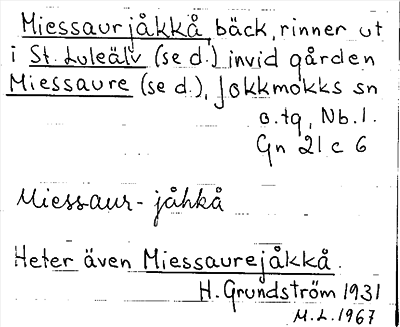 Miessaurjåkkå, bäck, rinner ut
i St. Luleälv (se d.) invid gården
Miessaure (se d.), Jokkmokks sn
o. tg, Nb. l.
Gn 21 c 6
Miessaur-jåhkå
Heter även Miessaurejåkkå.
H. Grundström 1931
M.L. 1967